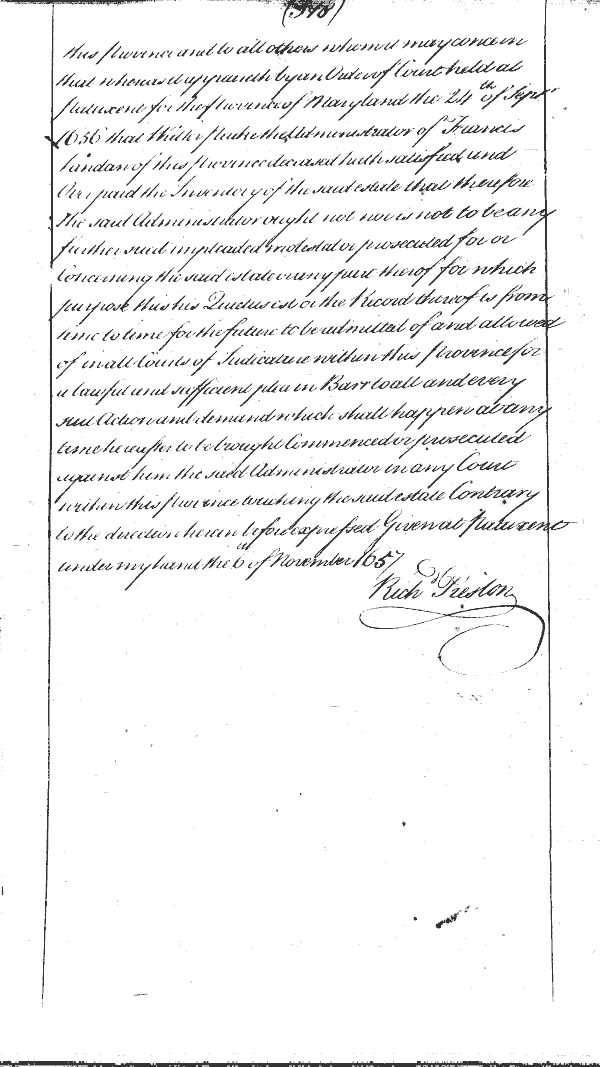 (348)
this Province and to all others whom it may concern
that whereas it appeareth by an Order of Court held at
Patuxent for the Province of Maryland the 24th of Septr
1656 that the Administrator of Francis
of this Province deceased hath satisfied, and
paid the Inventory of the said estate that therefore
The said Administrator ought not nor is not to be any
further sued impleaded molested or prosecuted for or
Concerning the said estate or any part thereof for which
purpose this his Quietus est or the Record thereof is from
time to time for the future to be admitted of and allowed
of in all Courts of Judicature within this Province for
a lawful and sufficient plea in Barr to all and every
suit Action and demand which shall happen at any
time hereafter to be brought Commenced or prosecuted
against him the said Administrator in any Court
within this Province touching the said estate Contrary
to the direction herein before expressed Given at Patuxent
under my hand the 6th of November 1657
Richd Preston